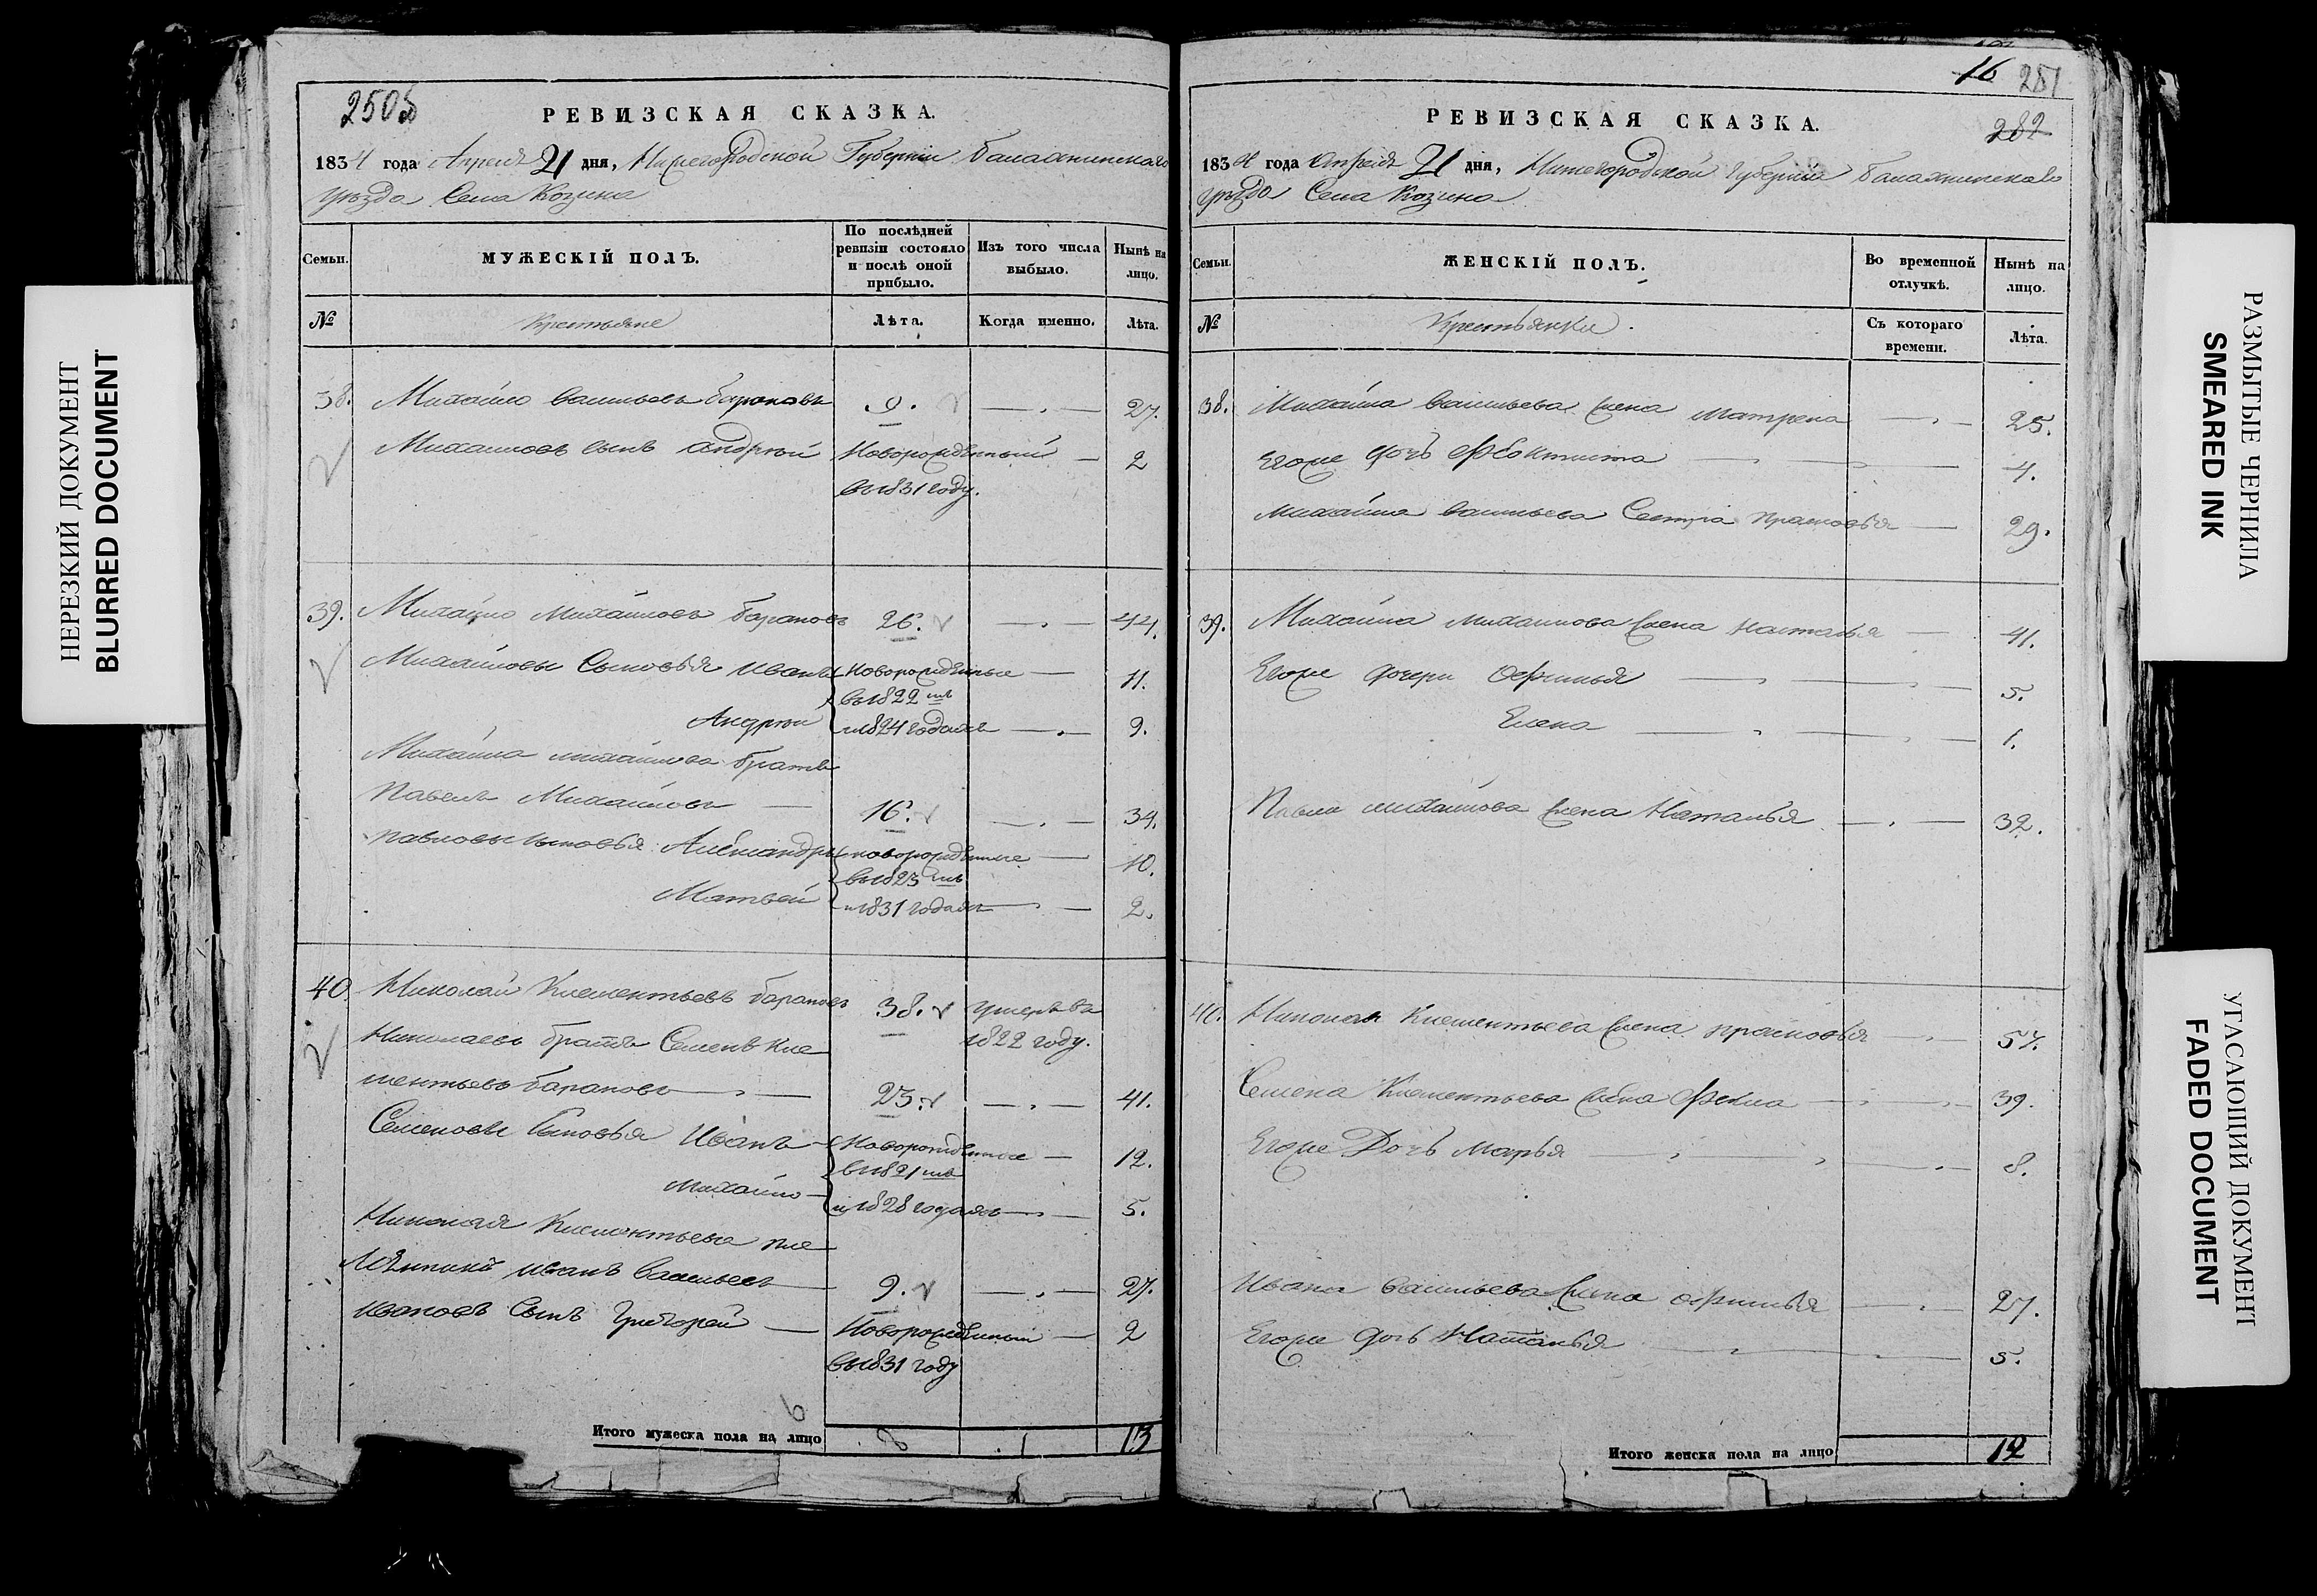 НЕРЕЗКИЙ ДОКУМЕНТ
BLURRED DOCUMENT
2505
РЕВИЗСКАЯ СКАЗКА.
1834 года Апреля 21 дня, Нижегородской Губернии Балахнинскаго
уѣзда Села Козина
Семьи.
МУЖЕСКІЙ ПОЛЪ.
По послѣдней ревизіи состояло и послѣ оной прибыло.
Изъ того числа выбыло.
Нынѣ на лицо.
№
Крестьяне
Лѣта.
Когда именно.
Лѣта.
38. Михайло Васильевъ Барановъ 9. 27.
Михайловъ сынъ Андрей Новорожденный 2
въ 1831 году.
39. Михайло Михайловъ Барановъ 26. 44.
Михайловы Сыновья Иванъ Новорожденные 11.
въ 1822 мъ
Андрей и 1824 годахъ 9.
Михайла Михайлова братъ
Павелъ Михайловъ 16. 34.
Павловы сыновья Александръ новорожденные 10.
въ 1823 мъ
Матвей и 1831 годахъ 2.
40 Николай Клементьевъ Барановъ 38. умеръ въ
1822 году.
Николаевъ братъ Семенъ Кле
ментьевъ Барановъ 23. 41.
Семеновы Сыновья Иванъ Новорожденные 12.
въ 1821 мъ
Михайло и 1828 годахъ 5.
Николая Клементьева пле
мянникъ Иванъ Васильевъ 9. 27.
Ивановъ Сынъ Григорей Новорожденный 2
въ 1831 году
6
Итого мужеска пола на лицо 8 1 13
16 281
282
РЕВИЗСКАЯ СКАЗКА.
1834 года Апреля 21 дня, Нижегородской Губернии Балахнинскаго
уѣзда Села Козина
Семьи.
ЖЕНСКІЙ ПОЛЪ.
Во временной отлучкѣ.
Нынѣ на лицо.
№
Крестьянки.
Съ котораго времени.
Лѣта.
38. Михайла Васильева жена Матрена 25.
Егоже дочь Феоктиста 4.
Михайла Васильева Сестра Прасковья 29.
39. Михайла Михайлова жена Наталья 41.
Егоже дочери Офимья 5.
Елена 1.
Павла Михайлова жена Наталья 32.
40. Николая Клементьева жена Прасковья 57.
Семена Клементьева жена Фекла 39.
Егоже Дочь Марья 8.
Ивана Васильева жена Офимья 27.
Егоже дочь Наталья 5.
Итого женска пола на лицо 12
РАЗМЫТЫЕ ЧЕРНИЛА
SMEARED INK
УГАСАЮЩИЙ ДОКУМЕНТ
FADED DOCUMENT